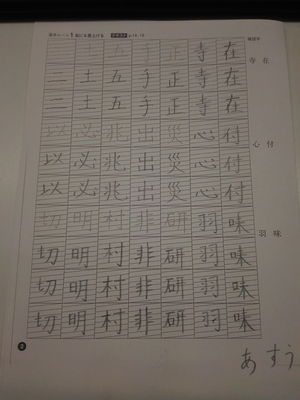 三 土 五 手 正 寺 在
三 土 五 手 正 寺 在
三 土 五 手 正 寺 在
以 必 兆 出 災 心 付
以 必 兆 出 災 心 付
以 必 兆 出 災 心 付
切 明 村 非 研 羽 味
切 明 村 非 研 羽 味
切 明 村 非 研 羽 味
切 明 村 非 研 羽 味
寺 在
心 付
羽 味
2
あ すう